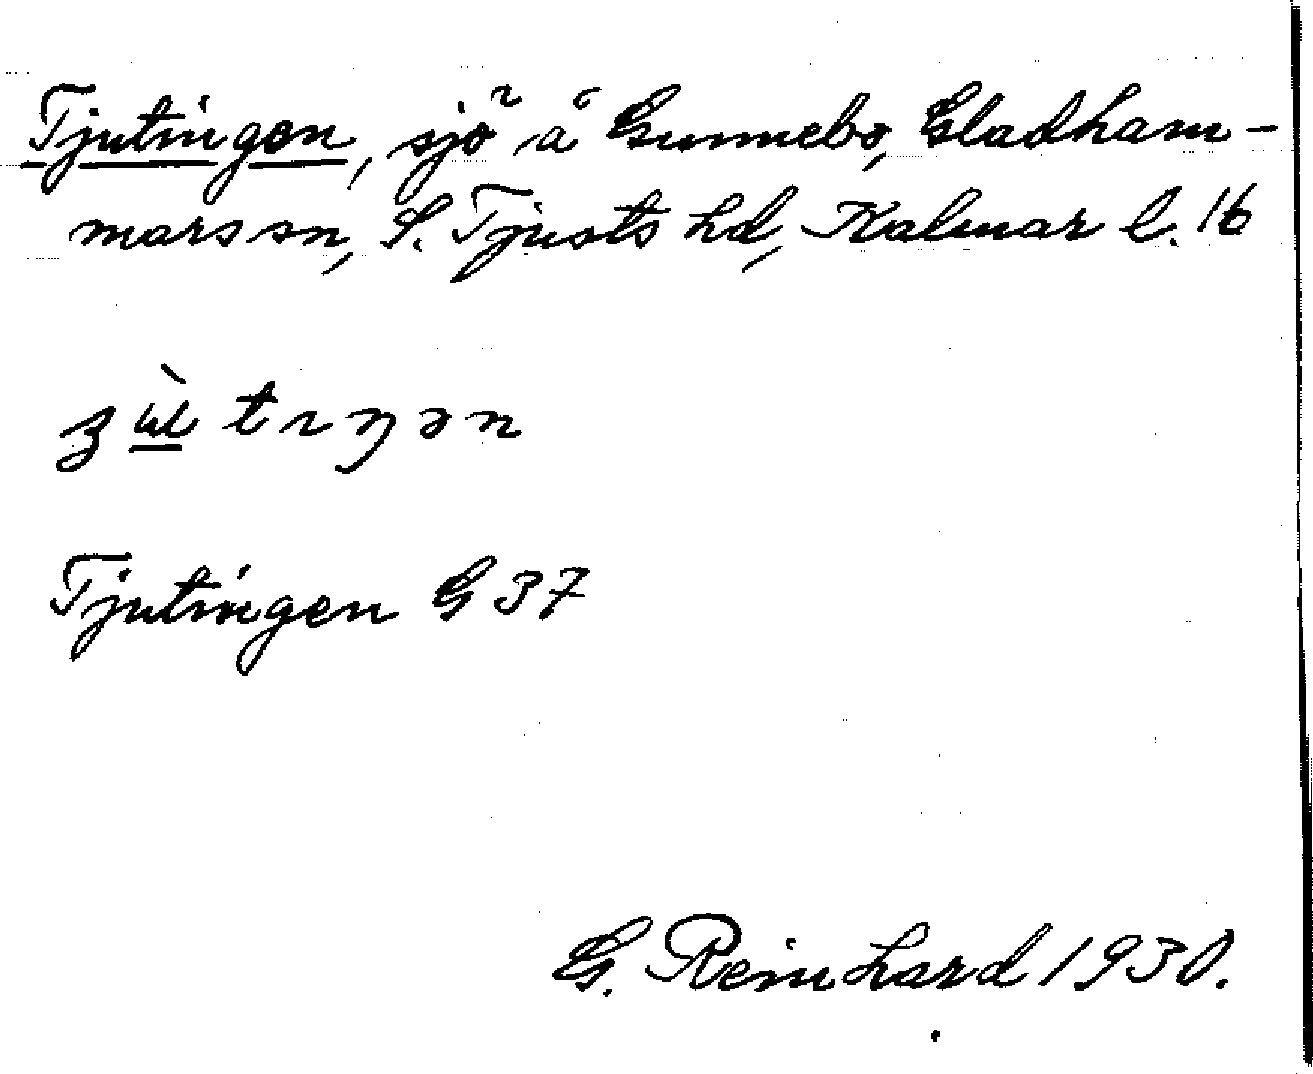 Tjutingen, sjö å Gunnebo, Gladham-
mars sn, S. Tjusts hd, Kalmar l. 16
ʒɯ̀tɪŋən
Tjutingen G 37
G. Reinhard 1930.